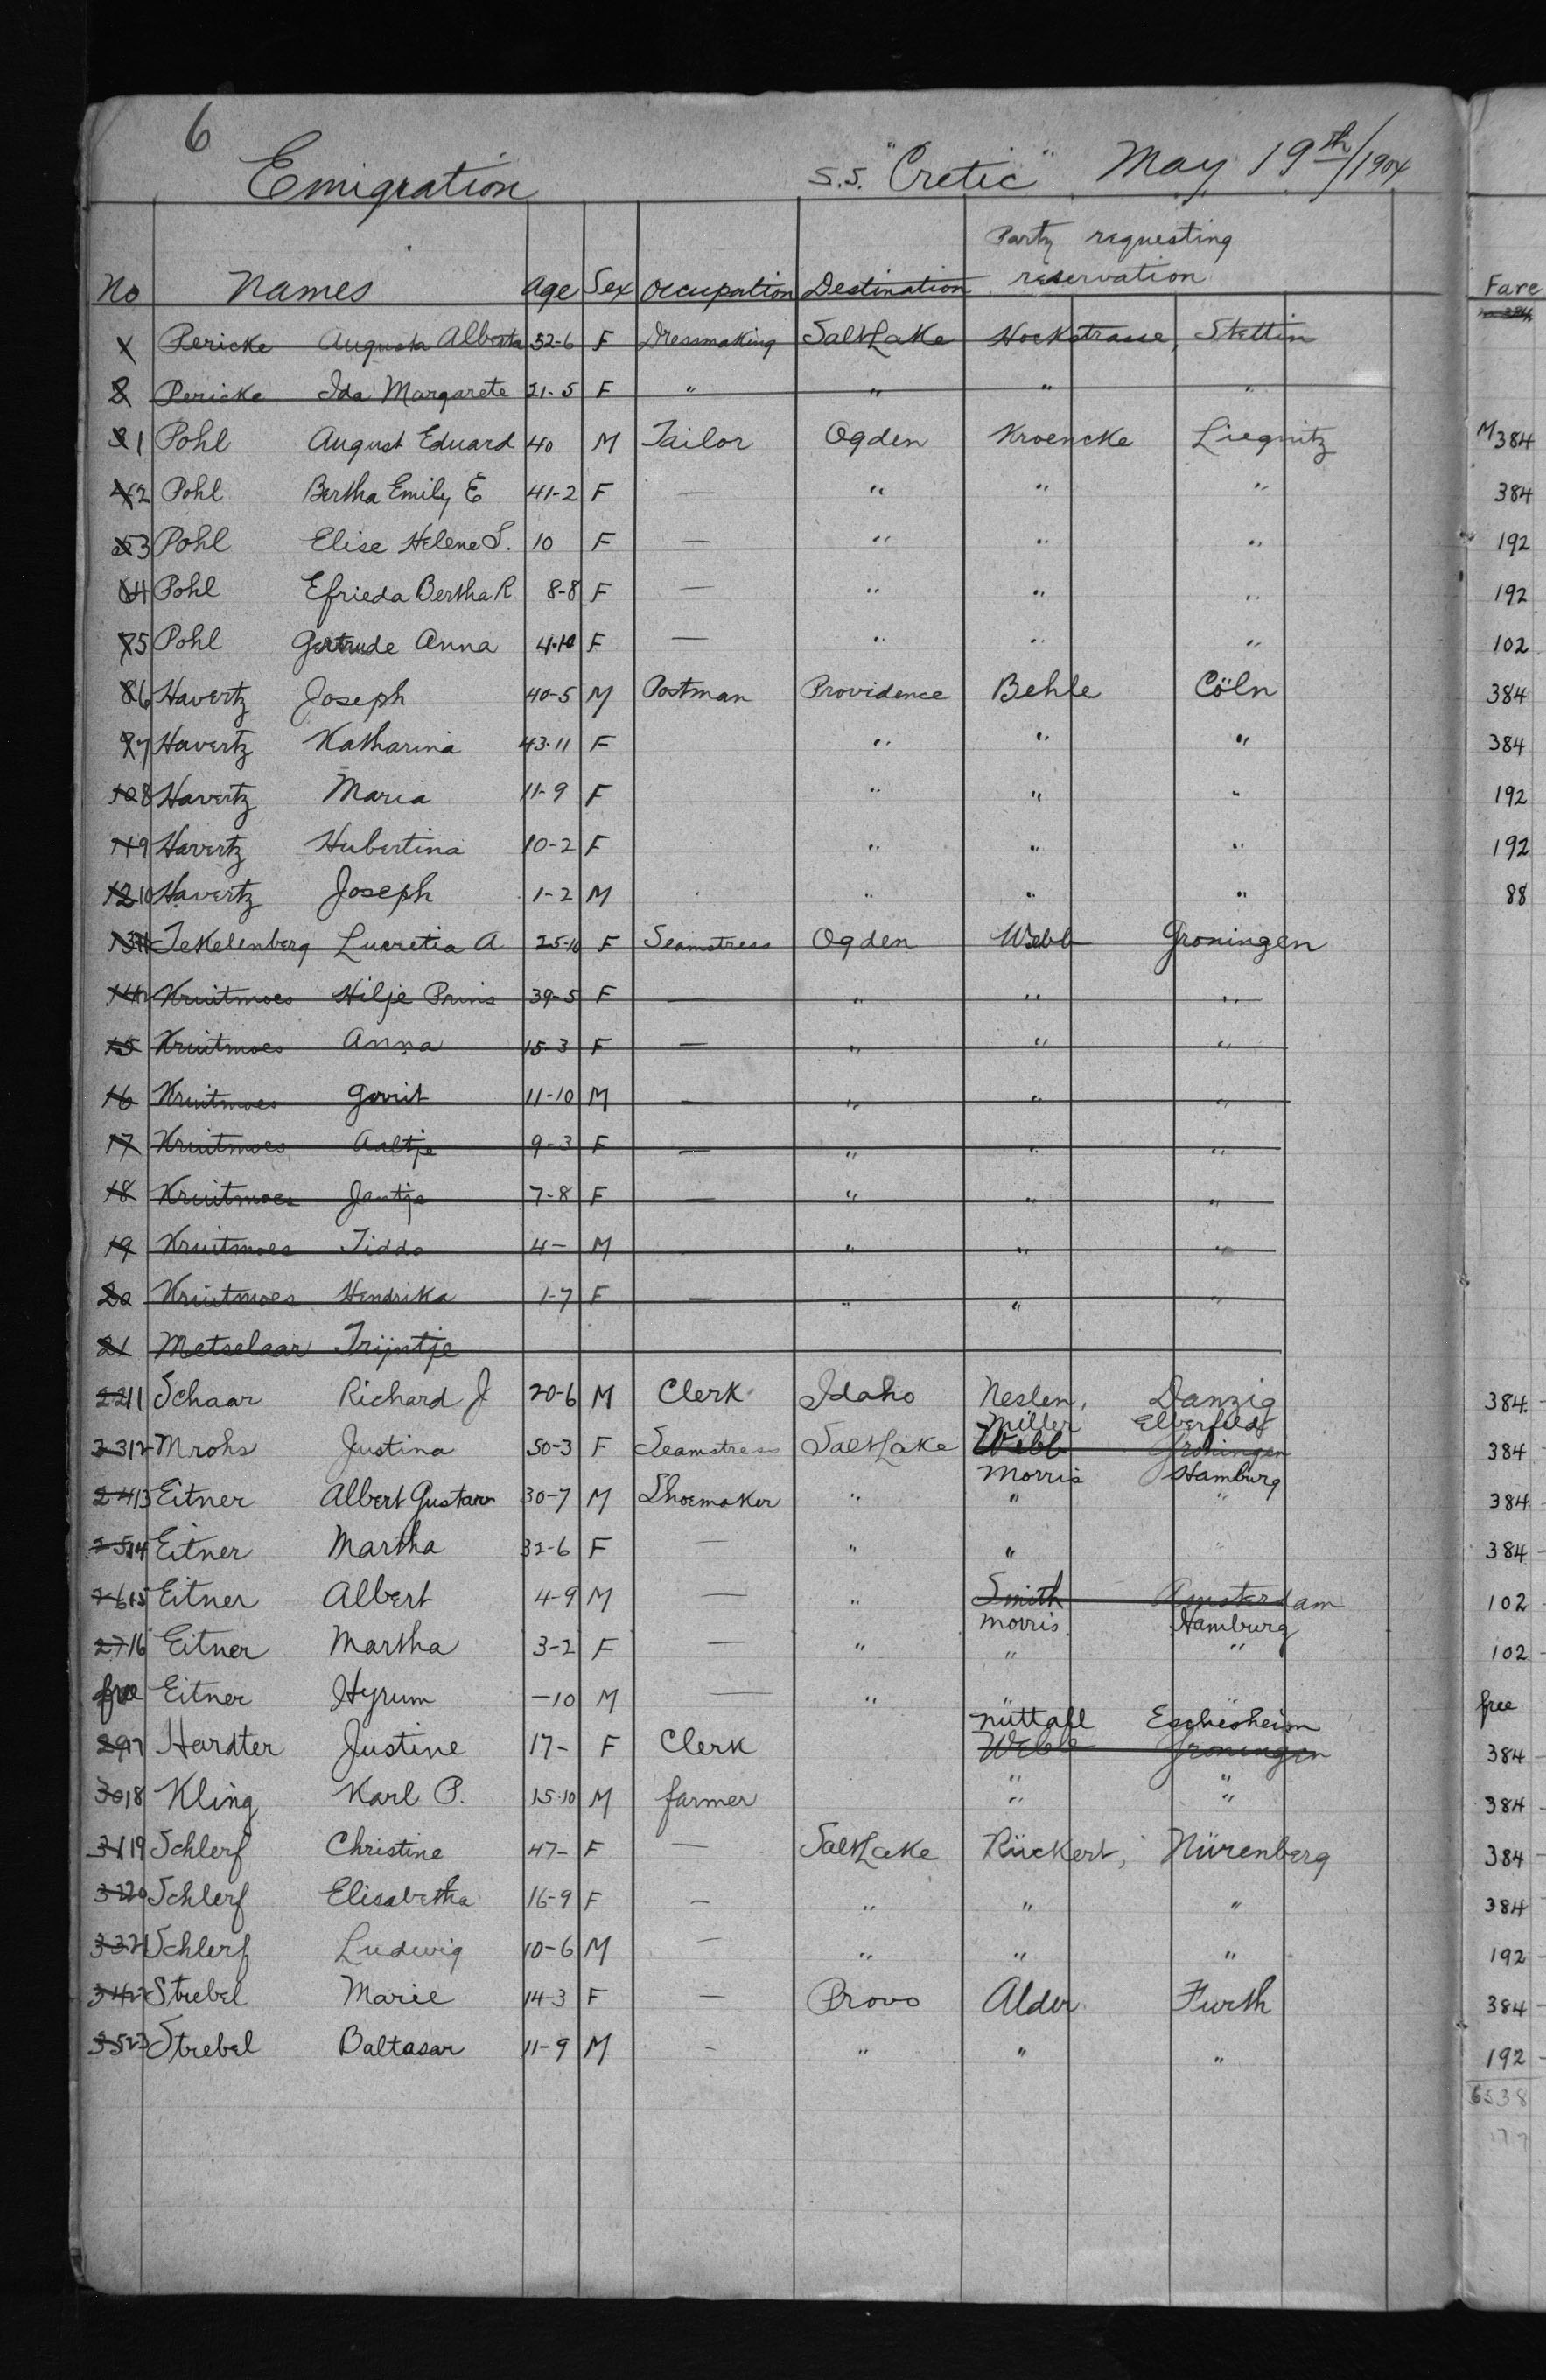 6
Emigration S.S. "Cretic" May 19th/1904
Party requesting
reservation
No Names Age Sex Occupation Destination Fare
1 Pericke Augusta Alberta 52-6 F Dressmaking Salt Lake Hockstrasse, Stettin
2 Pericke Ida Margarete 21-5 F " " " "
3 1 Pohl August Eduard 40 M Tailor Ogden Kroencke Liegnitz M 384
4 2 Pohl Bertha Emily E 41-2 F — " " " 384
5 3 Pohl Elise Helene S. 10 F — " " " 192
6 4 Pohl Efrieda Bertha R 8-8 F — " " " 192
7 5 Pohl Gertrude Anna 4-10 F — " " " 102
8 6 Havertz Joseph 40-5 M Postman Providence Behle Cöln 384
9 7 Havertz Katharina 43-11 F " " " 384
10 8 Havertz Maria 11-9 F " " " 192
11 9 Havertz Hubertina 10-2 F " " " 192
12 10 Havertz Joseph 1-2 M " " " 88
13 11 Tekelenberg Lucretia A 25-10 F Seamstress Ogden Webb Groningen
14 Kruitmoes Hilje Prins 39-5 F — " " "
15 Kruitmoes Anna 15-3 F — " " "
16 Kruitmoes Gerrit 11-10 M — " " "
17 Kruitmoes Aaltje 9-3 F — " " "
18 Kruitmoes Jantje 7-8 F — " " "
19 Kruitmoes Tiddo 4- M " " "
20 Kruitmoes Hendrika 1-7 F — " " "
21 Metselaar Trijntje
22 11 Schaar Richard J 20-6 M Clerk Idaho Neslen, Danzig 384
Miller Elberfeldt
23 12 Mrohs Justina 50-3 F Seamstress Salt Lake Webb Groningen 384
Morris Hamburg
24 13 Eitner Albert Gustav 30-7 M Shoemaker " " " 384
25 14 Eitner Martha 32-6 F — " " " 384
26 15 Eitner Albert 4-9 M — " Smith Amsterdam 102
Morris Hamburg
27 16 Eitner Martha 3-2 F — " " " 102
free Eitner Hyrum -10 M — " " " free
Nuttall Eschesheim
29 17 Hardter Justine 17- F Clerk Webb Groningen 384
30 18 Kling Karl P. 15-10 M farmer " " 384
31 19 Schlerf Christine 47- F — Salt Lake Rückert, Nürenberg 384
32 20 Schlerf Elisabetha 16-9 F — " " " 384
33 21 Schlerf Ludwig 10-6 M — " " " 192
34 22 Strebel Marie 14-3 F — Provo Alder Furth 384
35 23 Strebel Baltasar 11-9 M - " " " 192
6538